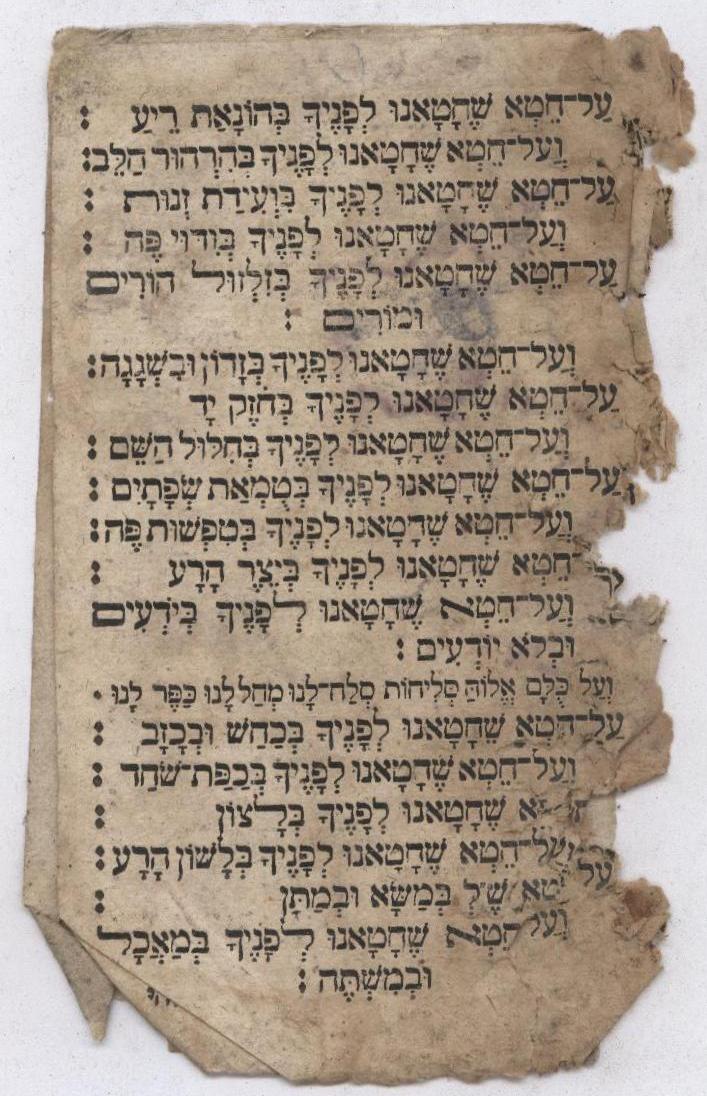 עַל־חֵטְא שֶׁחָטָאנוּ לְפָנֶיךָ בְּהוֹנָאַת רֵיעַ :
וְעַל־חֵטְא שֶׁחָטָאנוּ לְפָנֶיךָ בְּהִרְהוּר הַלֵּב:
עַל־חֵטְא שֶׁחָטָאנוּ לְפָנֶיךָ בִּוְעִידַת זְנוּת :
וְעַל־חֵטְא שֶׁחָטָאנוּ לְפָנֶיךָ בְּוִדּוּי פֶּה :
עַל־חֵטְא שֶׁחָטָאנוּ לְפָנֶיךָ בְּזִלְזוּל הוֹרִים
וּמוֹרִים :
וְעַל־חֵטְא שֶׁחָטָאנוּ לְפָנֶיךָ בְּזָדוֹן וּבִשְׁגָגָה:
עַל־חֵטְא שֶׁחָטָאנוּ לְפָנֶיךָ בְּחֹזֶק יָד
וְעַל־חֵטְא שֶׁחָטָאנוּ לְפָנֶיךָ בְּחִלּוּל הַשֵּׁם :
עַל־חֵטְא שֶׁחָטָאנוּ לְפָנֶיךָ בְּטֻמְאַת שְׂפָתָיִם :
וְעַל־חֵטְא שֶׁחָטָאנוּ לְפָנֶיךָ בְּטִפְשׁוּת פֶּה:
חֵטְא שֶׁחָטָאנוּ לְפָנֶיךָ בְּיֵצֶר הָרָע :
וְעַל־חֵטְא שֶׁחָטָאנוּ לְפָנֶיךָ בְּיֹדְעִים
וּבְלֹא יוֹדְעִים :
וְעַל כֻּלָּם אֱלוֹהַּ סְלִיחוֹת סְלַח־לָנוּ מְחַל לָנוּ כַּפֶּר לָנוּ .
עַל־חֵטְא שֶׁחָטָאנוּ לְפָנֶיךָ בְּכַחַשׁ וּבְכָזָב :
וְעַל־חֵטְא שֶׁחָטָאנוּ לְפָנֶיךָ בְּכַפַּת־שֹׁחַד :
שֶׁחָטָאנוּ לְפָנֶיךָ בְּלָצוֹן :
וְעַל־חֵטְא שֶׁחָטָאנוּ לְפָנֶיךָ בְּלָשׁוֹן הָרָע :
עַל חֵטְא שֶׁלְ בְּמַשָּׂא וּבְמַתָּן :
וְעַל חֵטְא שֶׁחָטָאנוּ לְפָנֶיךָ בְּמַאֲכָל
וּבְמִשְׁתֶּה :